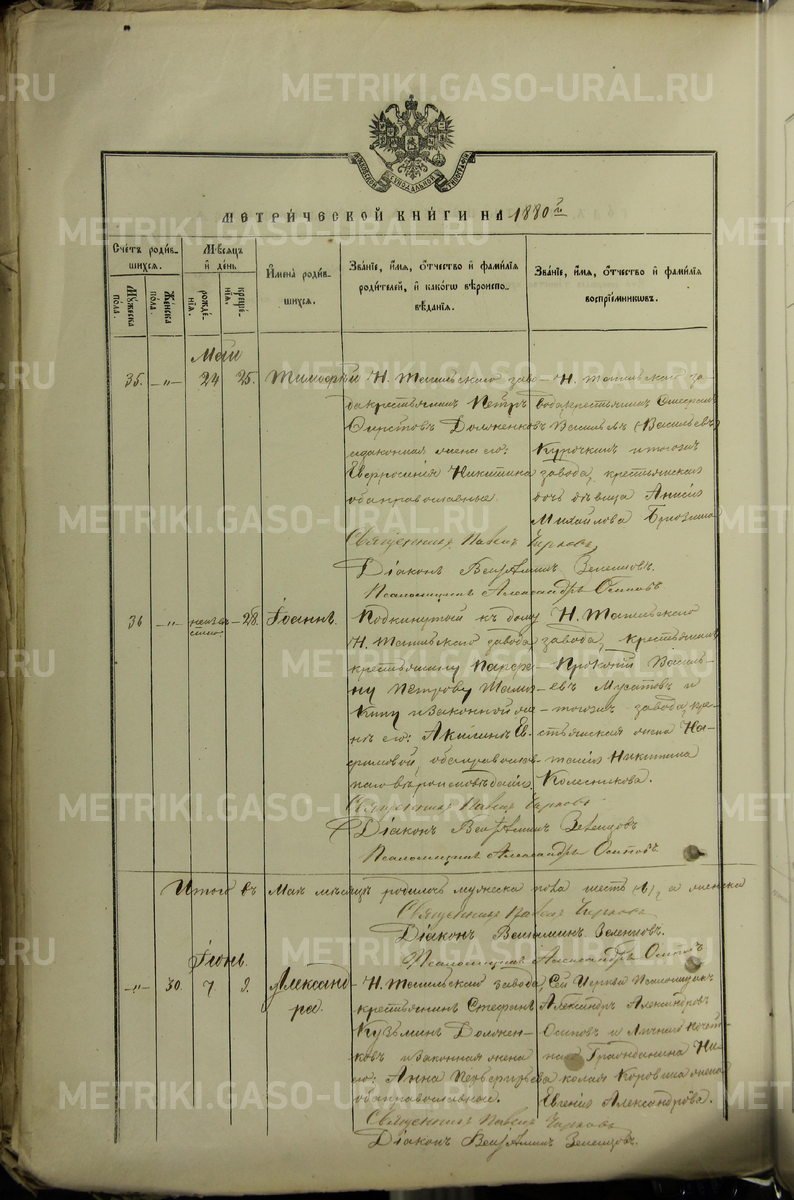 METRIKI.GASO-URAL.RU
МОСКОВСКОЙ СѴНОДАЛЬНОЙ ТИПОГРАФІИ
МЕТРИ́ЧЕСКОЙ КНИ́ГИ НА 1880 г.
Счётъ роди́вшихся.
Мужеска пола.
Женска пола.
Мѣ́сяцъ и҆ де́нь
рожде́нія.
креще́нія.
И҆мена̀ роди́вшихся.
Зва́ніе, и҆́мѧ, ѻ҆́тчество и҆ фами́лїѧ роди́телей, и҆ како́гѡ вѣроисповѣ́данїѧ.
Зва́ніе, и҆́мѧ, ѻ҆́тчество и҆ фами́лїѧ воспрїе́мникѡвъ.
Маи
35. —"— 24 25. Тимофей
Н. Тагильского заво-
да крестьянинъ Петръ
Долженковъ
и законная жена его:
Евфросинія Никитина
оба православные.
Н. Тагильского за-
вода крестьянин
Васильевъ
Курочкинъ и тогож
завода, крестьянская
дочь дѣвица Анисія
Михайлова
Священникъ Павелъ
Діаконъ Веніаминъ Зеленцовъ.
Псаломщикъ Александръ Осиповъ
36 —"— неизвѣстно 28. Іоаннъ.
Подкинутой къ дому
Н. Тагильского завода
крестьянину Парфе-
ну Петрову
и законной же-
нѣ его: Акилинѣ Ев-
фимовой, оба православ-
наго вѣроисповѣданія
Н. Тагильского
завода, крестьянинъ
Прокопій Василь-
евъ Мусатовъ и
тогожъ завода кре-
стьянская жена На-
талія Никитина
Колесникова.
Священникъ Павелъ
Діаконъ Веніаминъ Зеленцовъ
Псаломщикъ Александръ Осиповъ
Итого въ Маѣ мѣсяцѣ родилось мужеска пола шесть а женска
Священникъ Павелъ
Діаконъ Веніаминъ Зеленцовъ.
Псаломщикъ Александръ Осиповъ
Іюнь
—"— 30. 7 9. Александ-
ра.
Н. Тагильской завода,
крестьянинъ Стефанъ
Кузьминъ Должен-
ковъ и законная жена
его: Анна
оба православные.
Сей Церкви Псаломщикъ
Александръ Александровъ
Осиповъ и личнаго почет-
наго Гражданина Ни-
колая Коровина жена
Евгенія Александрова.
Священникъ Павелъ
Діаконъ Веніаминъ Зеленцовъ.